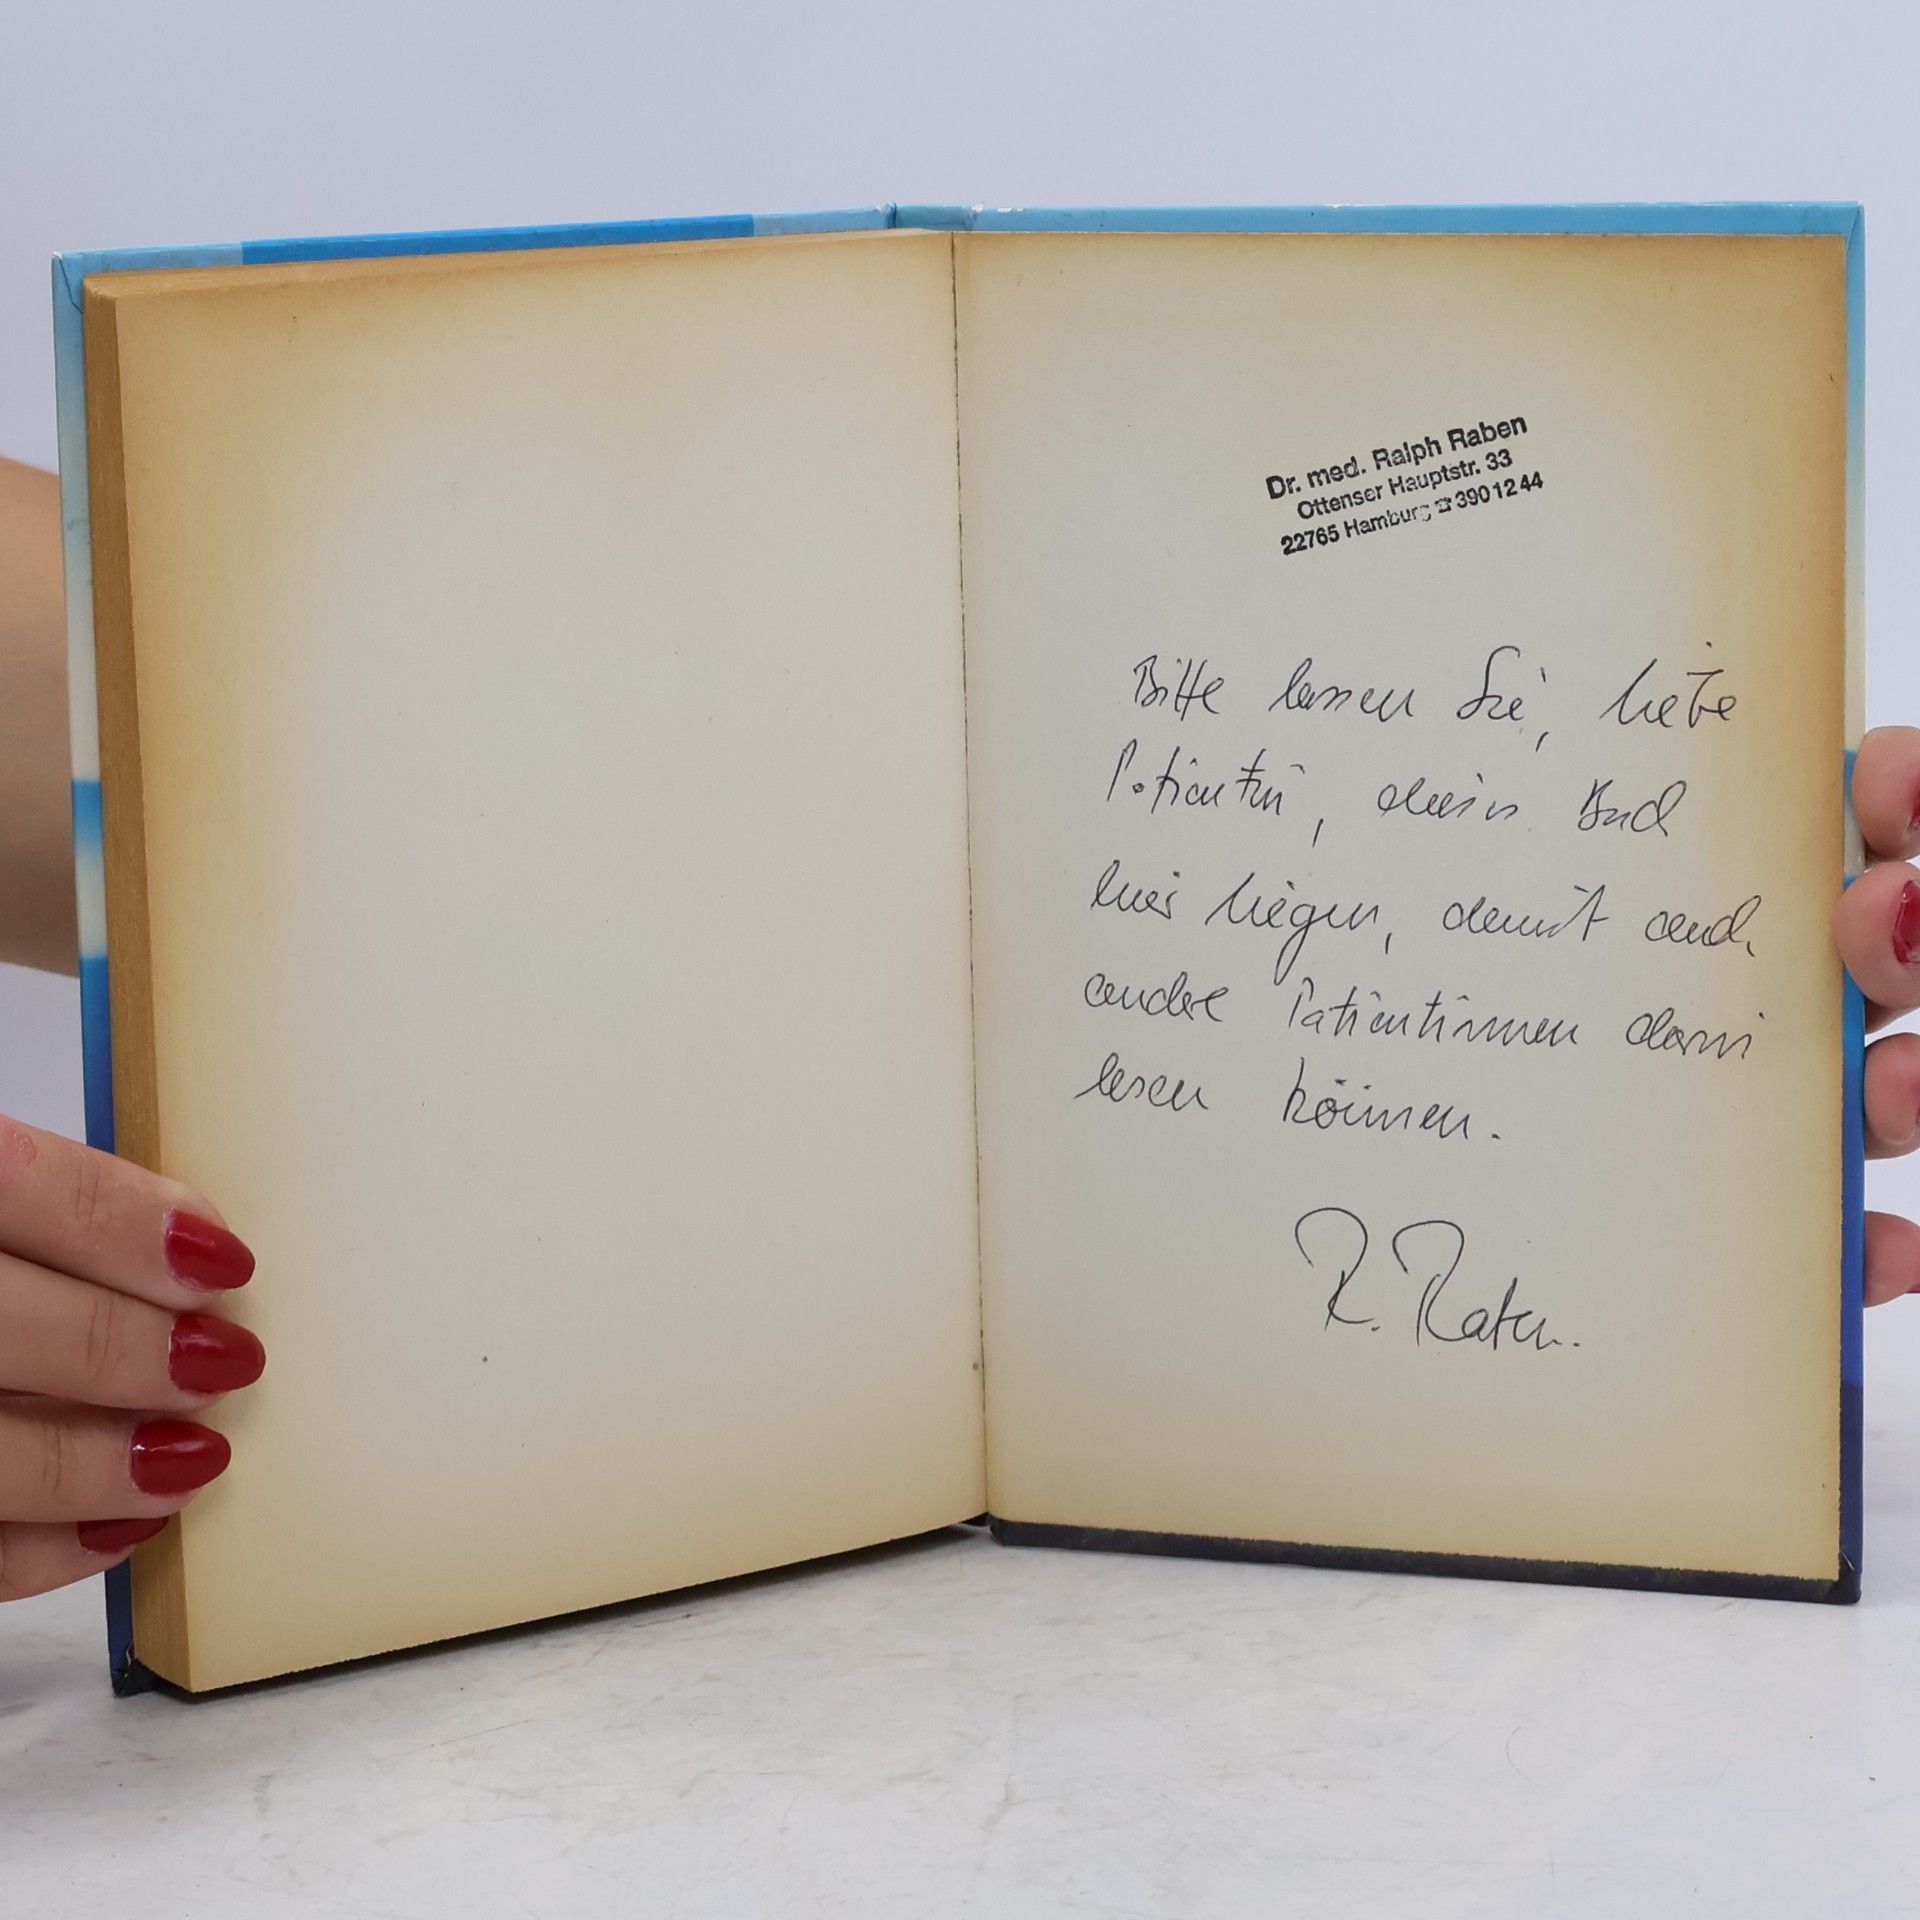 Dr. med. Ralph Raben
Ottenser Hauptstr. 33
22765 Hamburg ☎ 390 12 44
Bitte lassen Sie, liebe
Patientin, dieses Buch
hier liegen, damit auch
andere Patientinnen darin
lesen können.
R. Raben.